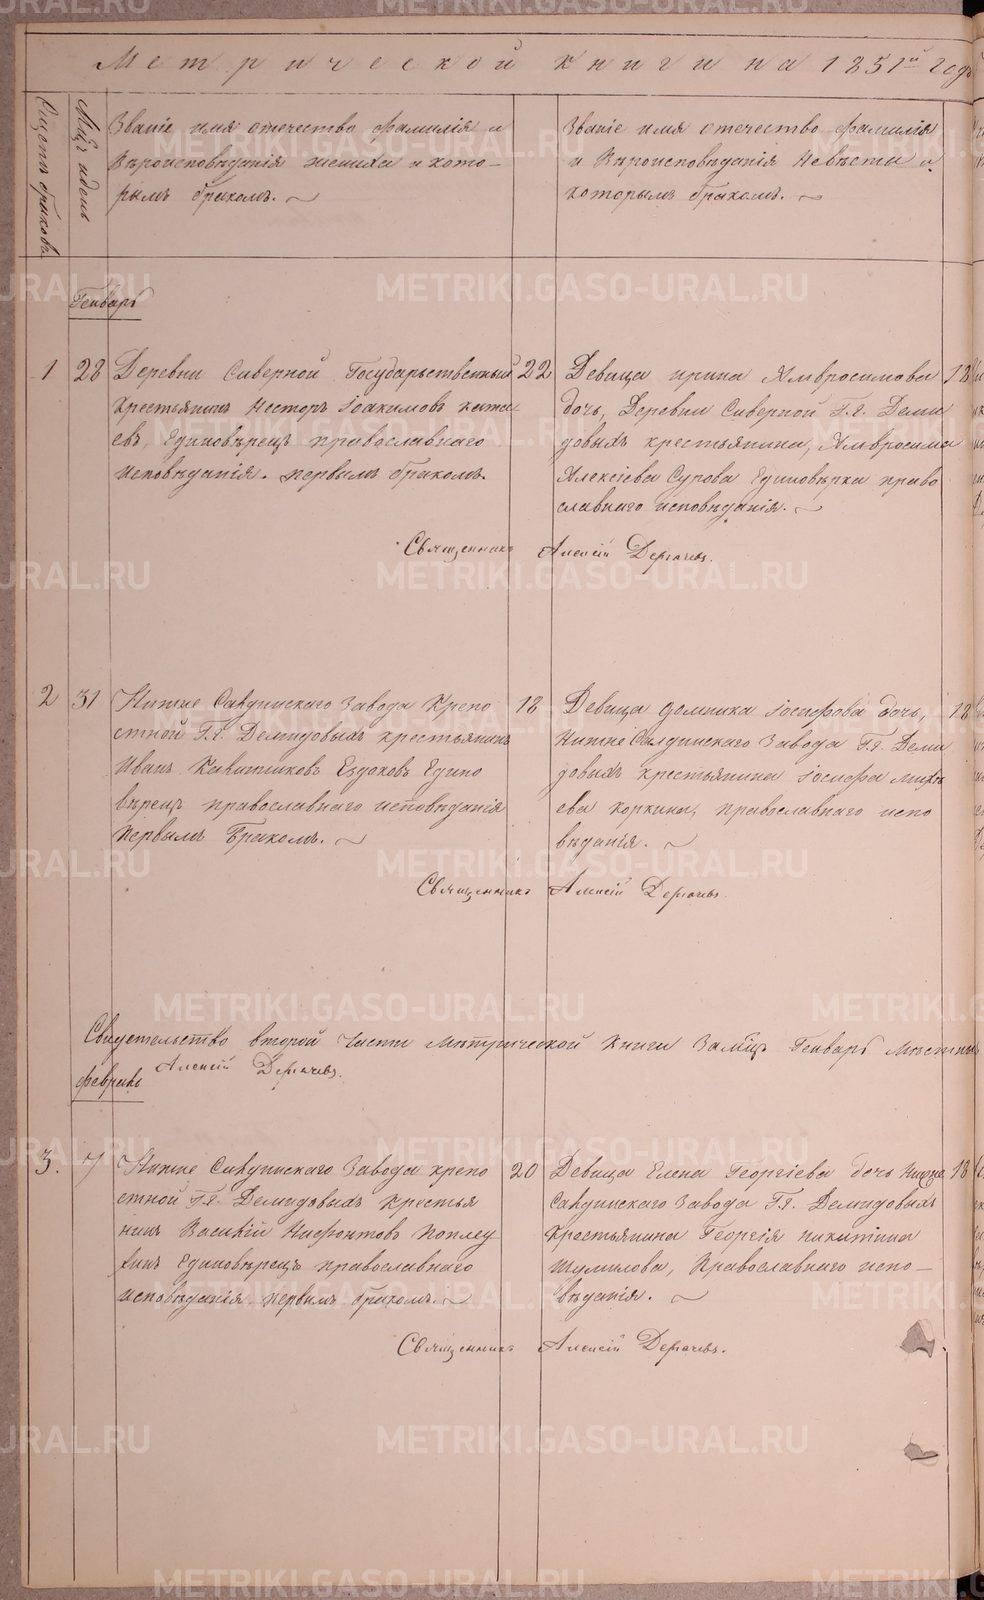 Метрической книги на 1851й годъ
Счетъ браковъ
Мѣс. и день
Званіе имя отечество фамилія и
Вѣроисповѣданія жениха и кото-
рымъ бракомъ.
Званіе имя отечество фамилія
и Вѣроисповѣданія Невѣсты и
которымъ бракомъ.
Генварь
1 28 Деревни Сиверной Государственный 22
крестьянинъ Несторъ Іоакимовъ
евъ, Единовѣрецъ православнаго
исповѣданія. первымъ бракомъ.
Девица ирина Амвросимова 18
дочь, Деревни Сиверной Г.г. Деми
довыхъ крестьянина, Амвросима
Алексіева Сурова Единовѣрка право
славнаго исповѣданія.
Священникъ Алексій Дергачевъ.
2 31 Нижне Салдинскаго Завода Крепо 18
стной Г.г. Демидовыхъ крестьянинъ
Иванъ Евдоковъ Едино
вѣрецъ православнаго исповѣданія
первымъ Бракомъ.
Девица домника Іосифова дочь, 18
Нижне Салдинскаго Завода Г.г. Деми
довыхъ крестьянина Іосифа
ева коркина, православнаго испо
вѣданія.
Священникъ Алексій Дергачевъ
Свидетельство второй Части Метрической Книги За мѣцъ Генварь Местныи
Алексій Дергачевъ.
февраль
3. 7 Нижне Салдинскаго Завода крепо 20
стной Г.г. Демидовыхъ Крестья
нинъ Василій Нифонтовъ Поплеу
хинъ Единовѣрецъ православнаго
исповѣданія первымъ бракомъ.
Девица Елена Георгіева дочь Нижне 18
Салдинскаго Завода Г.г. Демидовыхъ
Крестьянина Георгія никитина
Шумилова, Православнаго испо-
вѣданія.
Священникъ Алексій Дергачевъ.
METRIKI.GASO-URAL.RU